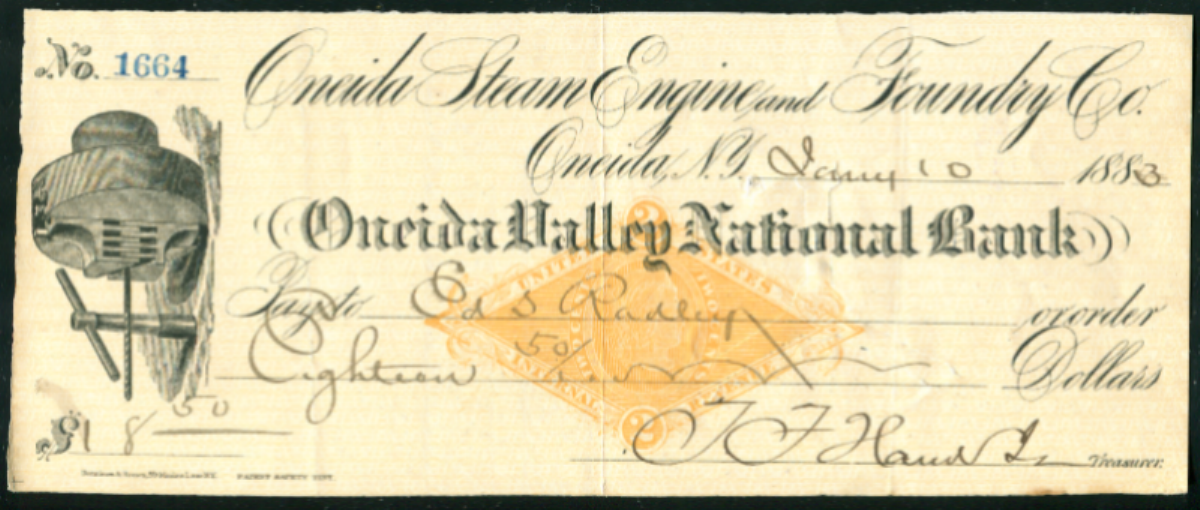 No. 1664
Oneida Steam Engine and Foundry Co.
Oneida, N.Y. Jany 10 1883
Oneida Valley National Bank
Pay to Ed S Radley or order
Eighteen 50/ Dollars
$18 50
T F Hand Jr Treasurer.
2
UNITED STATES
INTERNAL
2
PATENT SAFETY